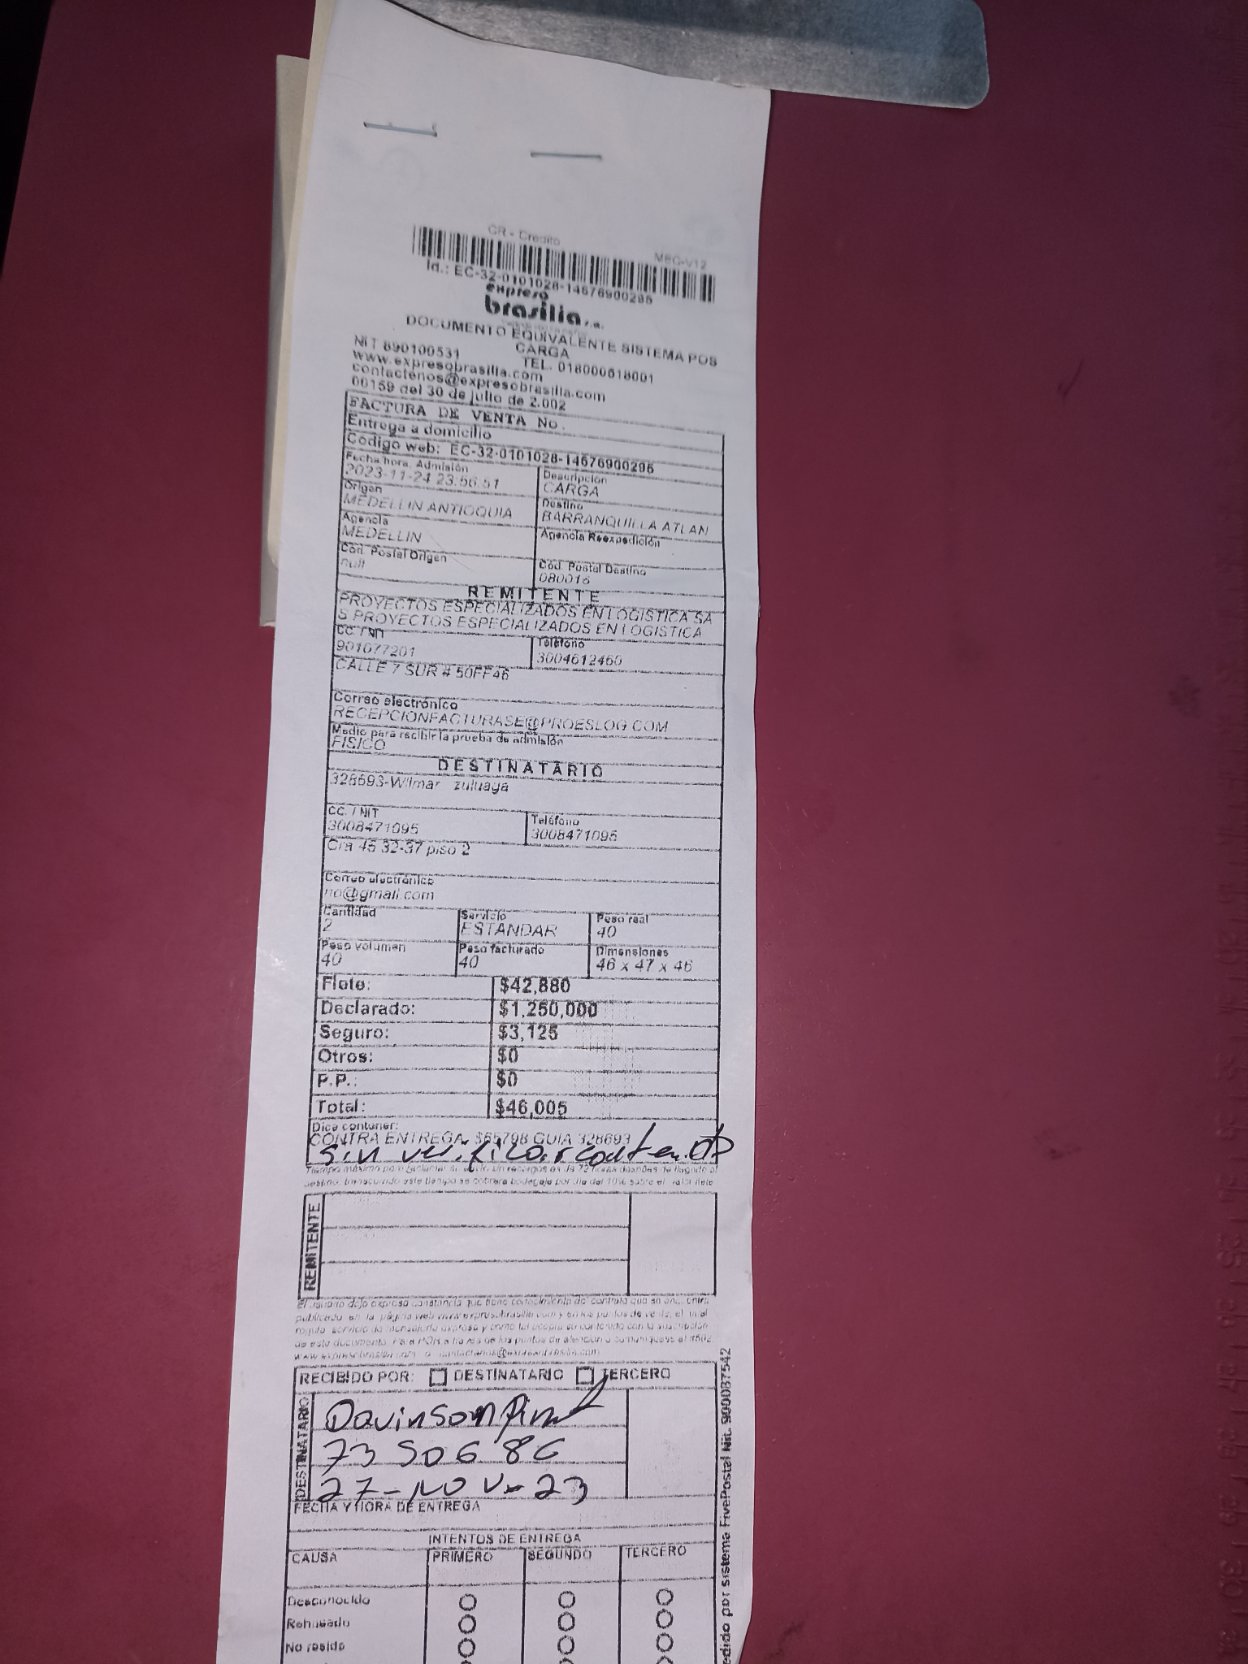 CR - Credito
MEC-V12
Id.: EC-32-0101028-14676900295
expreso
brasilia s.a.
DOCUMENTO EQUIVALENTE SISTEMA POS
CARGA
NIT 890100531
TEL. 018000518001
www.expresobrasilia.com
contactenos@expresobrasilia.com
00159 del 30 de julio de 2.002
FACTURA DE VENTA No.
Entrega a domicilio
Código web: EC-32-0101028-14676900295
Fecha hora, Admisión
2023-11-24 23:56:51
Descripción
CARGA
Origen
MEDELLIN ANTIOQUIA
Destino
BARRANQUILLA ATLAN
Agencia
MEDELLIN
Agencia Reexpedición
Cód. Postal Origen
null
Cód. Postal Destino
080016
REMITENTE
PROYECTOS ESPECIALIZADOS EN LOGISTICA SA
S PROYECTOS ESPECIALIZADOS EN LOGISTICA
CC. / NIT
901077201
Teléfono
3004612460
CALLE 7 SUR # 50FF46
Correo electrónico
RECEPCIONFACTURASE@PROESLOG.COM
Medio para recibir la prueba de admisión
FISICO
DESTINATARIO
328693-Wilmar zuluaga
CC. / NIT
3008471095
Teléfono
3008471095
Cra 46 32-37 piso 2
Correo electrónico
no@gmail.com
Cantidad
2
Servicio
ESTANDAR
Peso real
40
Peso volumen
40
Peso facturado
40
Dimensiones
46 x 47 x 46
Flete: $42,880
Declarado: $1,250,000
Seguro: $3,125
Otros: $0
P.P.: $0
Total: $46,005
Dice contener:
CONTRA ENTREGA $65798 GUIA 328693
sin verificar contenido
REMITENTE
RECIBIDO POR: DESTINATARIO TERCERO
DESTINATARIO
Davinson
73 506 86
27-NOV-23
FECHA Y HORA DE ENTREGA
INTENTOS DE ENTREGA
CAUSA PRIMERO SEGUNDO TERCERO
Desconocido
Rehusado
No reside
edido por sistema FivePostal Nit. 900087542